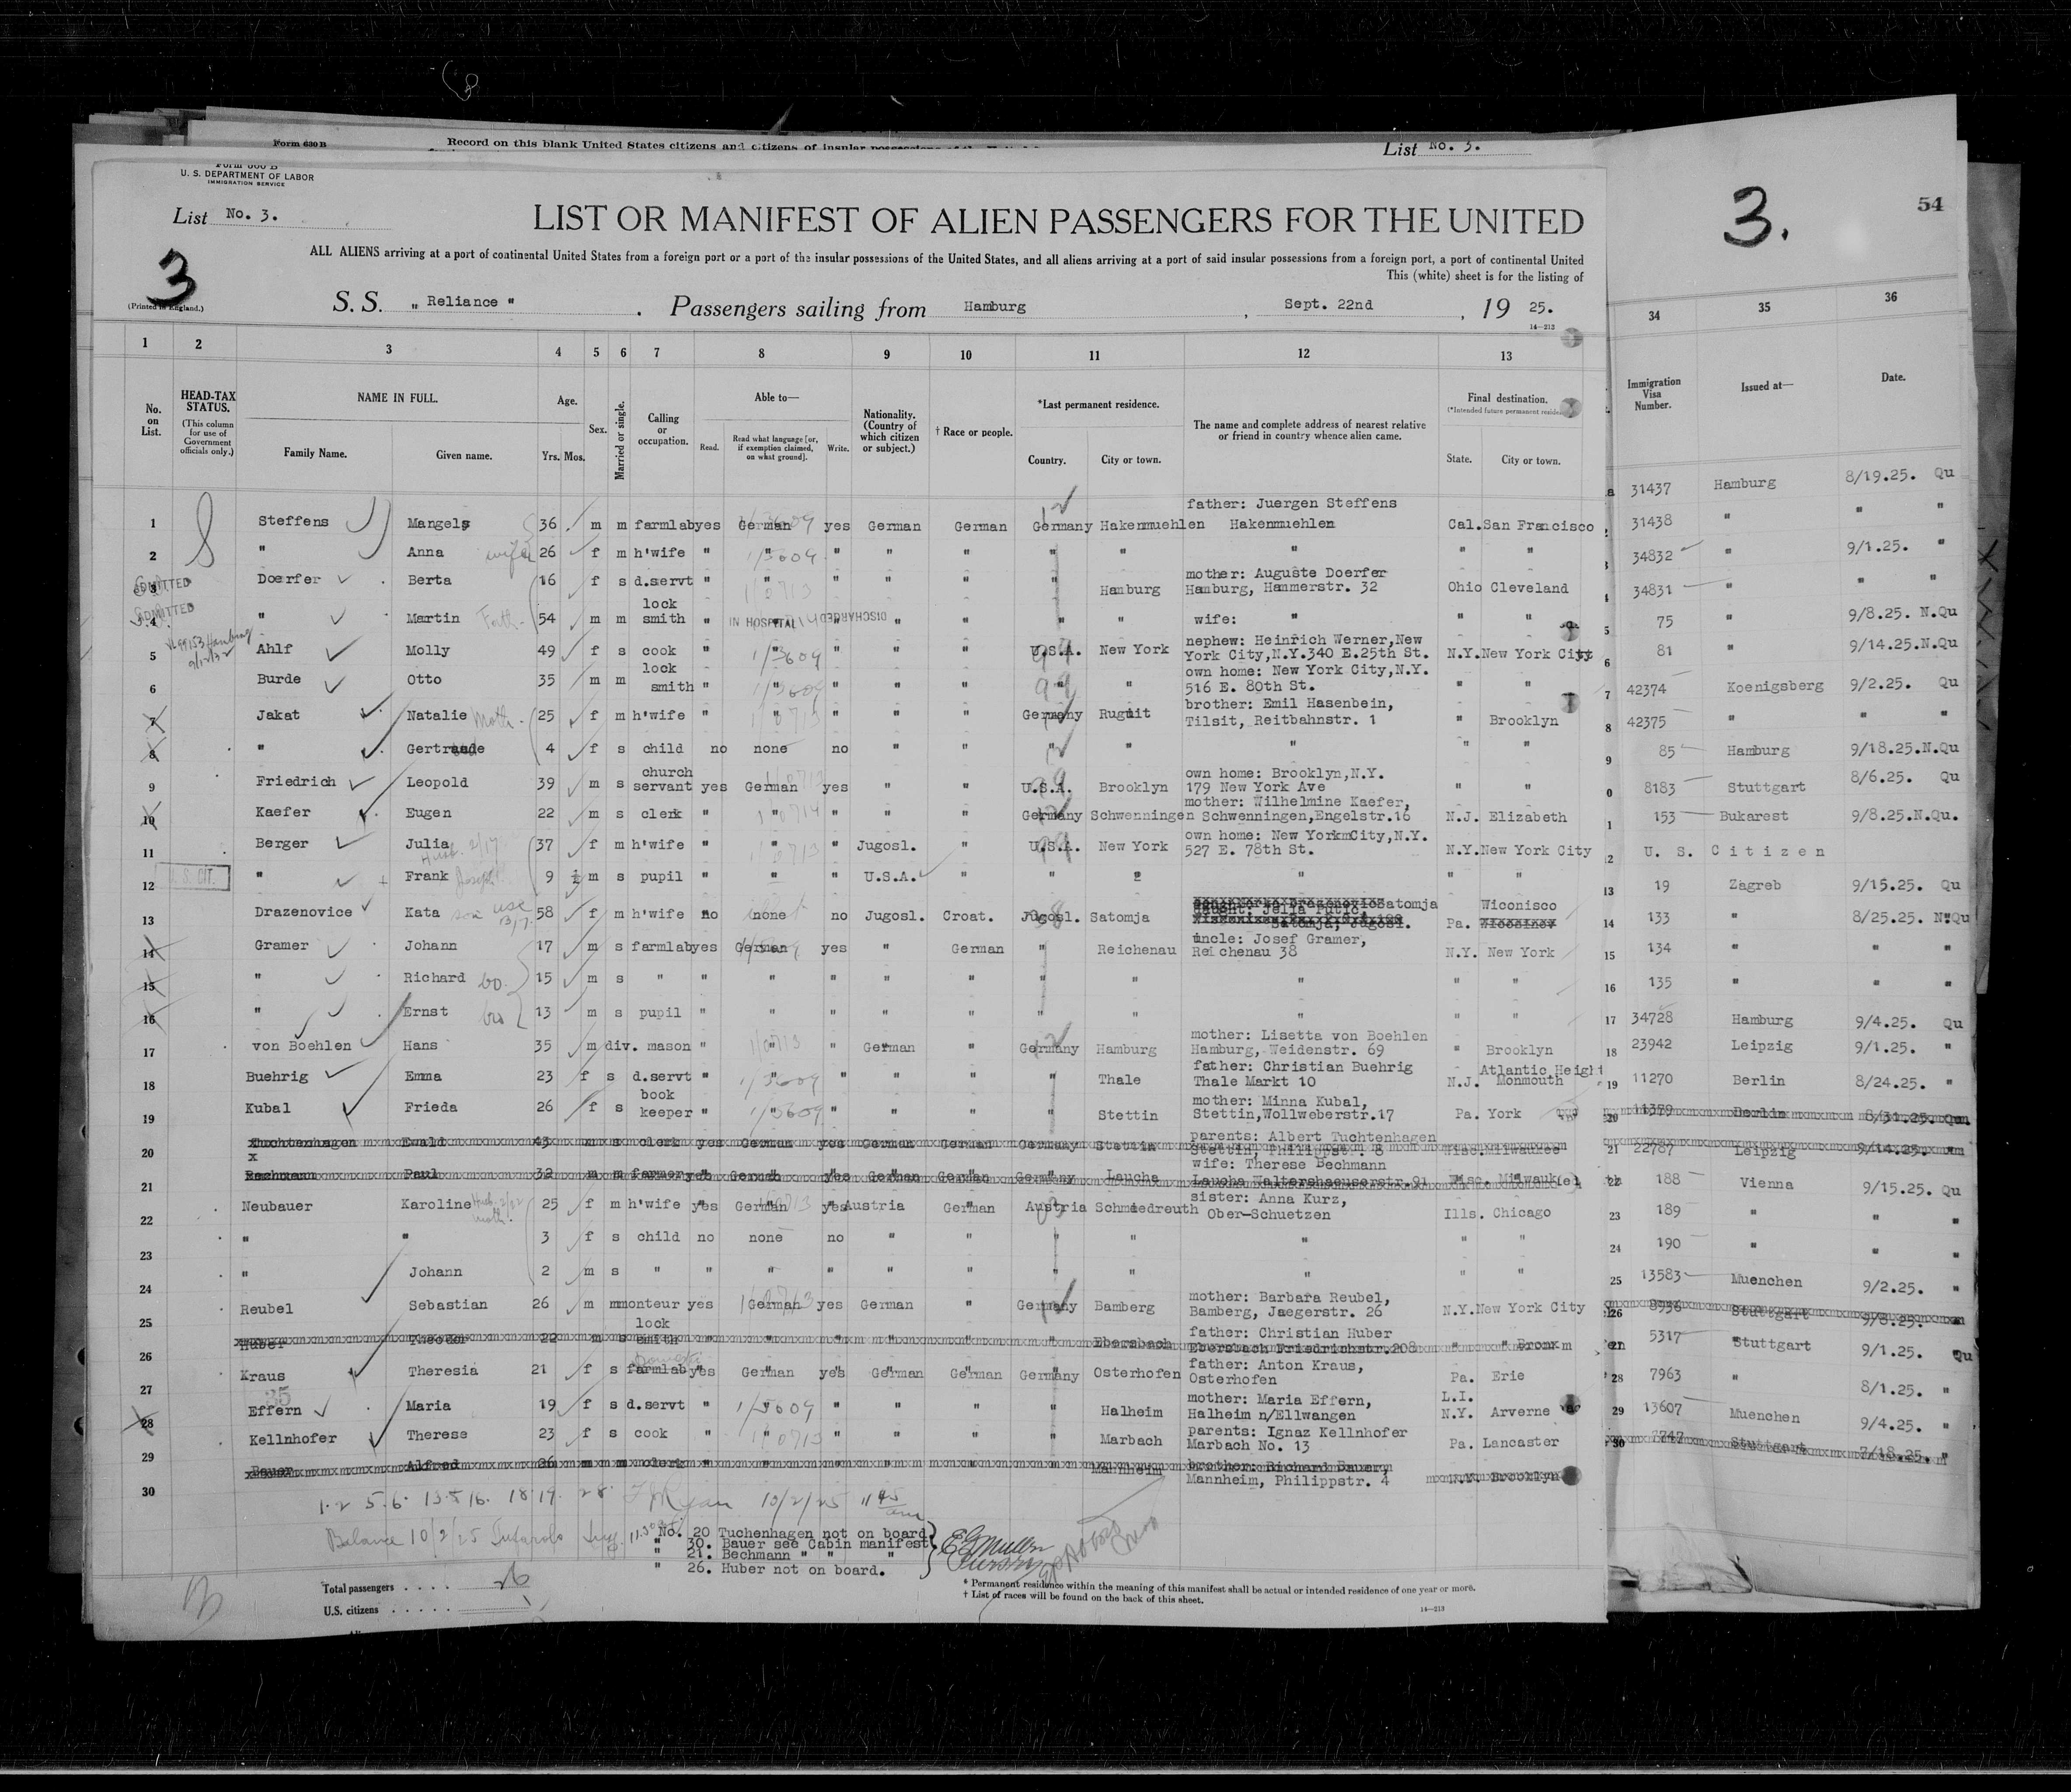 Form 630 B Record on this blank United States citizens and citizens of insular possessions
List No. 3.
U. S. DEPARTMENT OF LABOR
IMMIGRATION SERVICE
List No. 3.
LIST OR MANIFEST OF ALIEN PASSENGERS FOR THE UNITED
3. 54
ALL ALIENS arriving at a port of continental United States from a foreign port or a port of the insular possessions of the United States, and all aliens arriving at a port of said insular possessions from a foreign port, a port of continental United
This (white) sheet is for the listing of
3
(Printed in England.)
S. S. „ Reliance " . Passengers sailing from Hamburg , Sept. 22nd , 19 25.
14—213
1 2 3 4 5 6 7 8 9 10 11 12 13 34 35 36
No. on List.
HEAD-TAX STATUS.
(This column for use of Government officials only.)
NAME IN FULL.
Family Name. Given name.
Age.
Yrs. Mos.
Sex.
Married or single.
Calling or occupation.
Able to—
Read. Read what language [or, if exemption claimed, on what ground]. Write.
Nationality. (Country of which citizen or subject.)
† Race or people.
*Last permanent residence.
Country. City or town.
The name and complete address of nearest relative or friend in country whence alien came.
Final destination.
(*Intended future permanent
State. City or town.
Immigration Visa Number.
Issued at—
Date.
father: Juergen Steffens
1 Steffens Mangels 36 m m farmlab yes German yes German German Germany Hakenmuehlen Hakenmuehlen Cal. San Francisco 31437 Hamburg 8/19.25. Qu
2 " Anna wife 26 f m h'wife " " " " " " " " " " 31438 " " "
mother: Auguste Doerfer
ADMITTED
3 Doerfer Berta 16 f s d.servt " " " " " " Hamburg Hamburg, Hammerstr. 32 Ohio Cleveland 34832 " 9/1.25. "
lock
ADMITTED
4 " Martin Fath. 54 m m smith " IN HOSPITAL DISCHARGED " " " " " wife: " " " 34831 " " "
nephew: Heinrich Werner,New
5 Ahlf Molly 49 f s cook " " " " " U.S.A. New York York City,N.Y.340 E.25th St. N.Y. New York City 75 " 9/8.25. N.Qu
lock
own home: New York City,N.Y.
6 Burde Otto 35 m m smith " " " " " " " 516 E. 80th St. " " 81 " 9/14.25.N.Qu
brother: Emil Hasenbein,
7 Jakat Natalie Moth. 25 f m h'wife " " " " " Germany Rugnit Tilsit, Reitbahnstr. 1 " Brooklyn 42374 Koenigsberg 9/2.25. Qu
8 " Gertraude 4 f s child no none no " " " " " " " 42375 " " "
church
own home: Brooklyn,N.Y.
9 Friedrich Leopold 39 m s servant yes German yes " " U.S.A. Brooklyn 179 New York Ave " " 85 Hamburg 9/18.25.N.Qu
mother: Wilhelmine Kaefer,
10 Kaefer Eugen 22 m s clerk " " " " " Germany Schwenningen Schwenningen,Engelstr.16 N.J. Elizabeth 8183 Stuttgart 8/6.25. Qu
own home: New YorkmCity,N.Y.
11 Berger Julia 37 f m h'wife " " " Jugosl. " U.S.A. New York 527 E. 78th St. N.Y. New York City 153 Bukarest 9/8.25.N.Qu.
12 U. S. CIT. " Frank 9 m s pupil " " " U.S.A. " " " " " " U. S. Citizen
13 Drazenovice Kata 58 f m h'wife no none no Jugosl. Croat. Jugosl. Satomja Satomja, Jugosl. Pa. Wiconisco 19 Zagreb 9/15.25. Qu
uncle: Josef Gramer,
14 Gramer Johann 17 m s farmlab yes German yes " German " Reichenau Reichenau 38 N.Y. New York 133 " 8/25.25. N.Qu
15 " Richard bo. 15 m s " " " " " " " " " " " 134 " " "
16 " Ernst bro 13 m s pupil " " " " " " " " " " 135 " " "
mother: Lisetta von Boehlen
17 von Boehlen Hans 35 m div. mason " " " German " Germany Hamburg Hamburg, Weidenstr. 69 " Brooklyn 34728 Hamburg 9/4.25. Qu
father: Christian Buehrig Atlantic Height
18 Buehrig Emma 23 f s d.servt " " " " " " Thale Thale Markt 10 N.J. Monmouth 23942 Leipzig 9/1.25. "
book
mother: Minna Kubal,
19 Kubal Frieda 26 f s keeper " " " " " " Stettin Stettin,Wollweberstr.17 Pa. York 11270 Berlin 8/24.25. "
parents: Albert Tuchtenhagen
20 Tuchtenhagen Ewald 43 m s clerk yes German yes German German Germany Stettin Stettin, Philippstr. 8 Wisc. Milwaukee 11379 Berlin 8/31.25. Qu
wife: Therese Bechmann
21 Bechmann Paul 32 m m farmer yes German yes German German Germany Laucha Laucha Waltershaeuserstr.91 Wisc. Milwaukee 22787 Leipzig 9/14.25.
sister: Anna Kurz,
22 Neubauer Karoline 25 f m h'wife yes German yes Austria German Austria Schmiedreuth Ober-Schuetzen Ills. Chicago 188 Vienna 9/15.25. Qu
23 " " 3 f s child no none no " " " " " " " 189 " " "
24 " Johann 2 m s " " " " " " " " " " " 190 " " "
mother: Barbara Reubel,
25 Reubel Sebastian 26 m m monteur yes German yes German " Germany Bamberg Bamberg, Jaegerstr. 26 N.Y. New York City 13583 Muenchen 9/2.25. "
lock
father: Christian Huber
26 Huber Theodor 22 m s smith " " " " " " Ebersbach Ebersbach Friedrichstr.208 " " Bronx 8936 Stuttgart 9/8.25.
father: Anton Kraus,
27 Kraus Theresia 21 f s farmlab yes German yes German German Germany Osterhofen Osterhofen Pa. Erie 5317 Stuttgart 9/1.25. Qu
mother: Maria Effern, L.I.
28 Effern Maria 19 f s d.servt " " " " " " Halheim Halheim n/Ellwangen N.Y. Arverne 7963 " 8/1.25. "
parents: Ignaz Kellnhofer
29 Kellnhofer Therese 23 f s cook " " " " " " Marbach Marbach No. 13 Pa. Lancaster 13607 Muenchen 9/4.25. "
brother: Richard Bauer,
30 Bauer Alfred 26 m m clerk " " " " " " Mannheim Mannheim, Philippstr. 4 N.Y. Brooklyn 7747 Stuttgart 7/18.25. "
1-2 5-6- 13 & 16. 18-19. 28. Ryan 10/2/25 11 45 am
Balance 10/2/25
No. 20 Tuchenhagen not on board
" 30. Bauer see Cabin manifest
" 21. Bechmann " " "
" 26. Huber not on board.
Total passengers . . . . 26
U.S. citizens . . . . . 1
* Permanent residence within the meaning of this manifest shall be actual or intended residence of one year or more.
† List of races will be found on the back of this sheet.
14—213